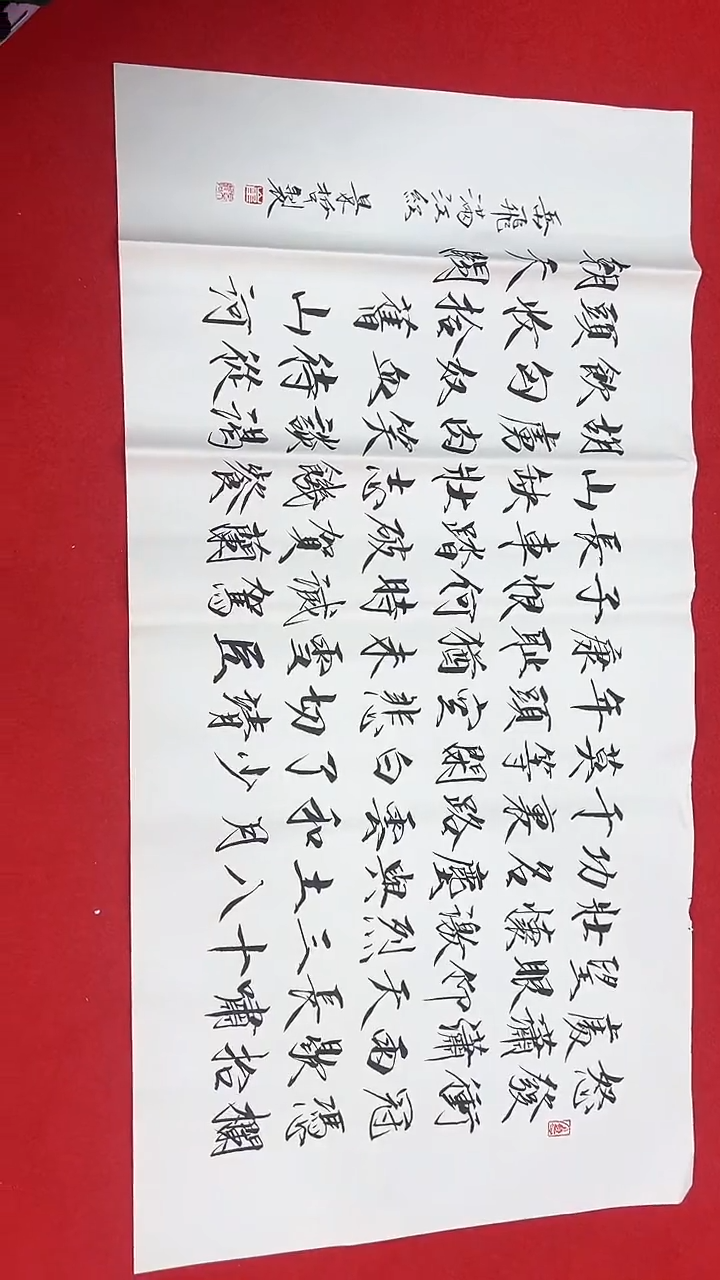 怒發衝冠憑欄
處蕭瀟雨歇抬
望眼仰天長嘯
壯懷激烈三十
功名塵與土八
千裏路雲和月
莫等閑白了少
年頭空悲切靖
康恥猶未雪臣
子恨何時滅駕
長車踏破賀蘭
山缺壯志饑餐
胡虜肉笑談渴
飲匈奴血待從
頭收拾舊山河
朝天闕
岳飛滿江紅 景哲製